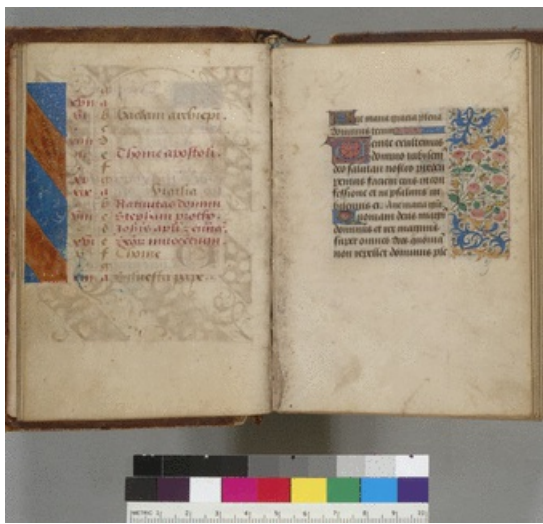 b Gaciani archiepi.
c
d
e Thome apostoli.
f
g
a Vigilia
b Natiuitas domini
c Stephani protho.
d Johis apli
e innocentum
f Thome
g
a Siluestri pape.
13
Aue maria gracia plena
dominus tecum
Uenite exultemus
domino iubilem
deo salutari nostro preocu
pemus faciem eius in con
fessione et in psalmis iu
bilemus ei. Aue maria gra
Quoniam deus magn
dominus et rex magnus
super omnes deos quonia
non repellet dominus ple
METRIC 1 2 3 4 5 6 7 8 9 10